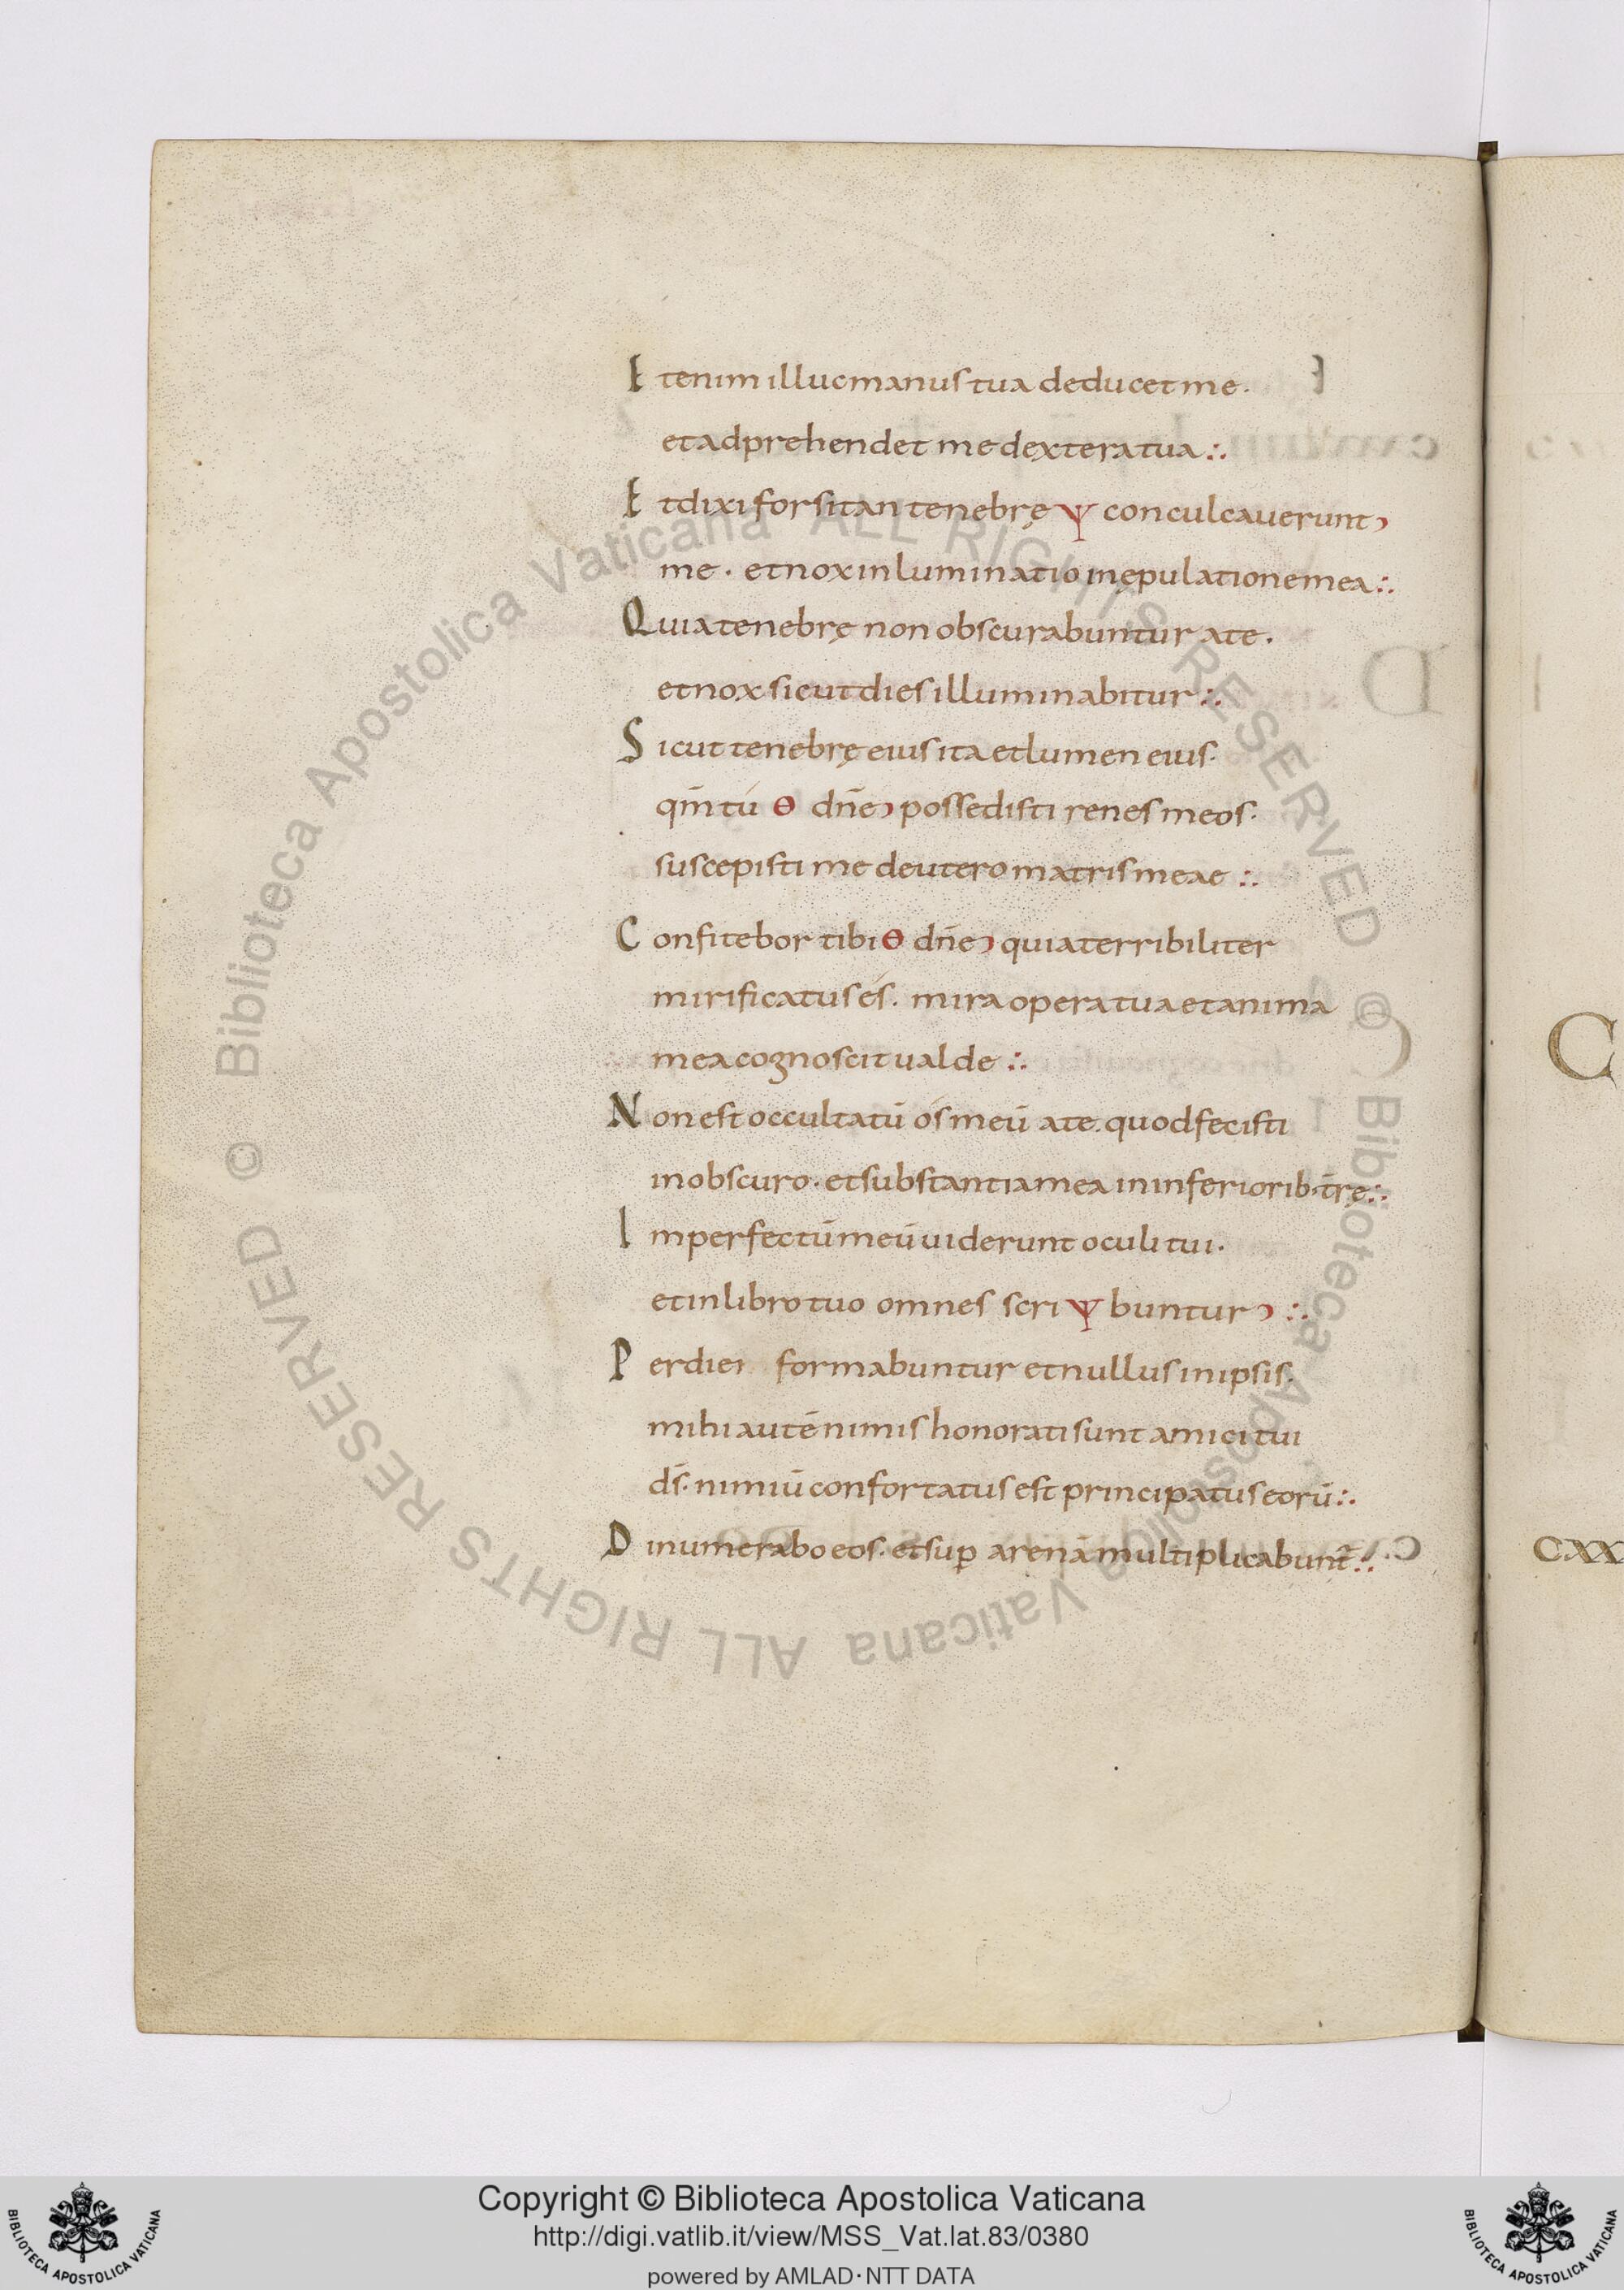 Etenim illuc manus tua deducet me.
et adprehendet me dextera tua∴
Et dixi forsitan tenebrę Ψ conculcauerunt ͻ
me. et nox inluminatio in ępulatione mea∴
Quia tenebrę non obscurabuntur a te.
et nox sicut dies illuminabitur∴
Sicut tenebrę eius ita et lumen eius.
qm̄ tú Θ dn̄e ͻ possedisti renes meos.
suscepisti me de utero matris meae∴
Confitebor tibi Θ dn̄e ͻ quia terribiliter
mirificatus és. mira opera tua et anima
mea cognoscit ualde∴
Non est occultatū ós meū a te. quod fecisti
in obscuro. et substantia mea in inferiorib· tr̄ę∴
Imperfectū meū uiderunt oculi tui.
et in libro tuo omnes scri Ψ buntur ͻ∴
Per diei formabuntur et nullus in ipsis.
mihi autē nimis honorati sunt amici tui
ds̄. nimiū confortatus est principatus eorū∴
Dinumerabo eos. et sup̄ arenā multiplicabunt̄∴
C
CXX
© Biblioteca Apostolica Vaticana ALL RIGHTS RESERVED © Biblioteca Apostolica Vaticana ALL RIGHTS RESERVED
Copyright © Biblioteca Apostolica Vaticana
http://digi.vatlib.it/view/MSS_Vat.lat.83/0380
powered by AMLAD·NTT DATA
BIBLIOTECA APOSTOLICA VATICANA
BIBLIOTECA APOSTOLICA VATICANA